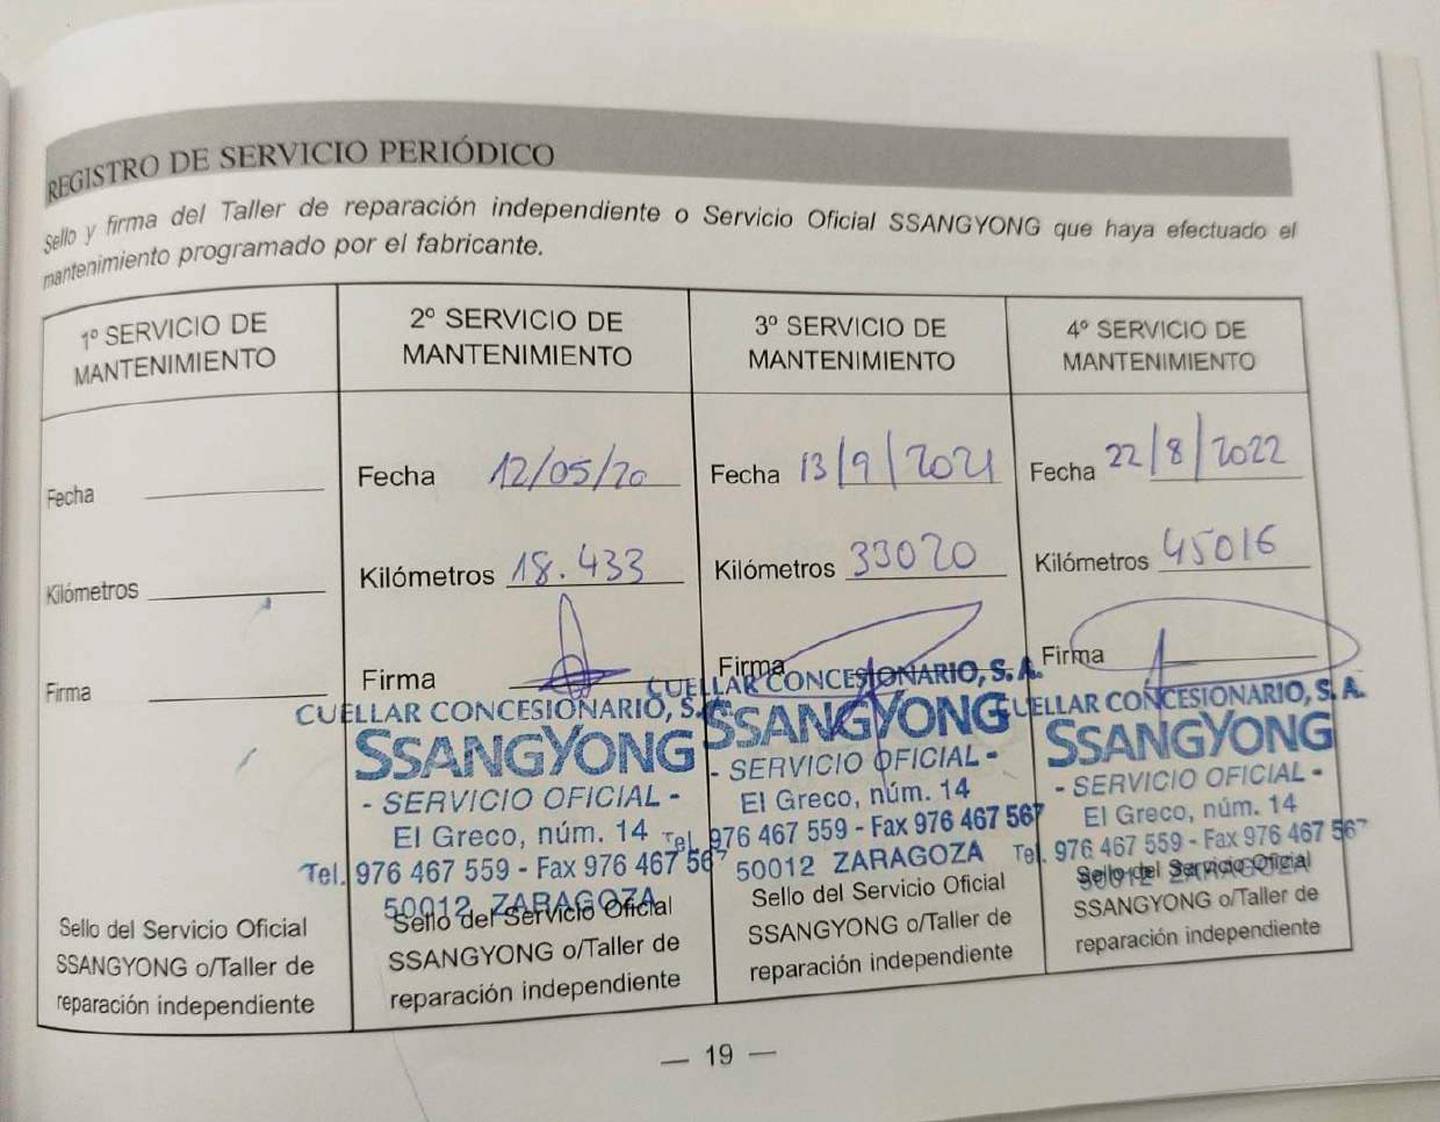 REGISTRO DE SERVICIO PERIÓDICO
Sello y firma del Taller de reparación independiente o Servicio Oficial SSANGYONG que haya efectuado el
mantenimiento programado por el fabricante.
1º SERVICIO DE
MANTENIMIENTO
Fecha
Kilómetros
Firma
Sello del Servicio Oficial
SSANGYONG o/Taller de
reparación independiente
2º SERVICIO DE
MANTENIMIENTO
Fecha 12/05/20
Kilómetros 18.433
Firma
CUELLAR CONCESIONARIO, S.A.
SSANGYONG
- SERVICIO OFICIAL -
El Greco, núm. 14
Tel. 976 467 559 - Fax 976 467 567
50012 ZARAGOZA
Sello del Servicio Oficial
SSANGYONG o/Taller de
reparación independiente
3º SERVICIO DE
MANTENIMIENTO
Fecha 13/9/2021
Kilómetros 33020
Firma
CUELLAR CONCESIONARIO, S.A.
SSANGYONG
- SERVICIO OFICIAL -
El Greco, núm. 14
Tel. 976 467 559 - Fax 976 467 567
50012 ZARAGOZA
Sello del Servicio Oficial
SSANGYONG o/Taller de
reparación independiente
4º SERVICIO DE
MANTENIMIENTO
Fecha 22/8/2022
Kilómetros 45016
Firma
CUELLAR CONCESIONARIO, S.A.
SSANGYONG
- SERVICIO OFICIAL -
El Greco, núm. 14
Tel. 976 467 559 - Fax 976 467 567
50012 ZARAGOZA
Sello del Servicio Oficial
SSANGYONG o/Taller de
reparación independiente
— 19 —